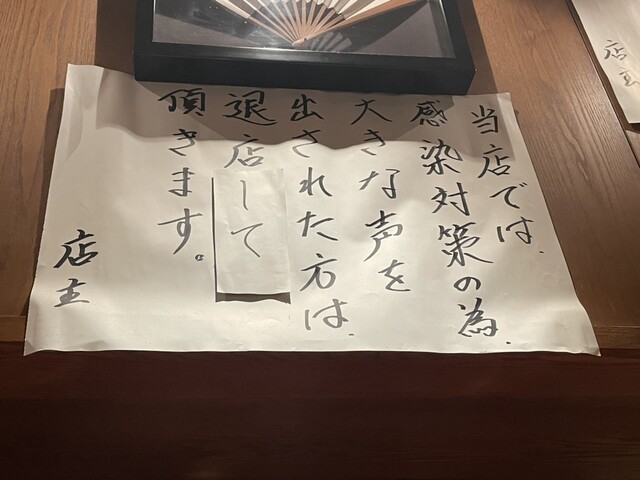 当店では、
感染対策の為、
大きな声を
出された方は、
退店して
頂きます。
店主
店主